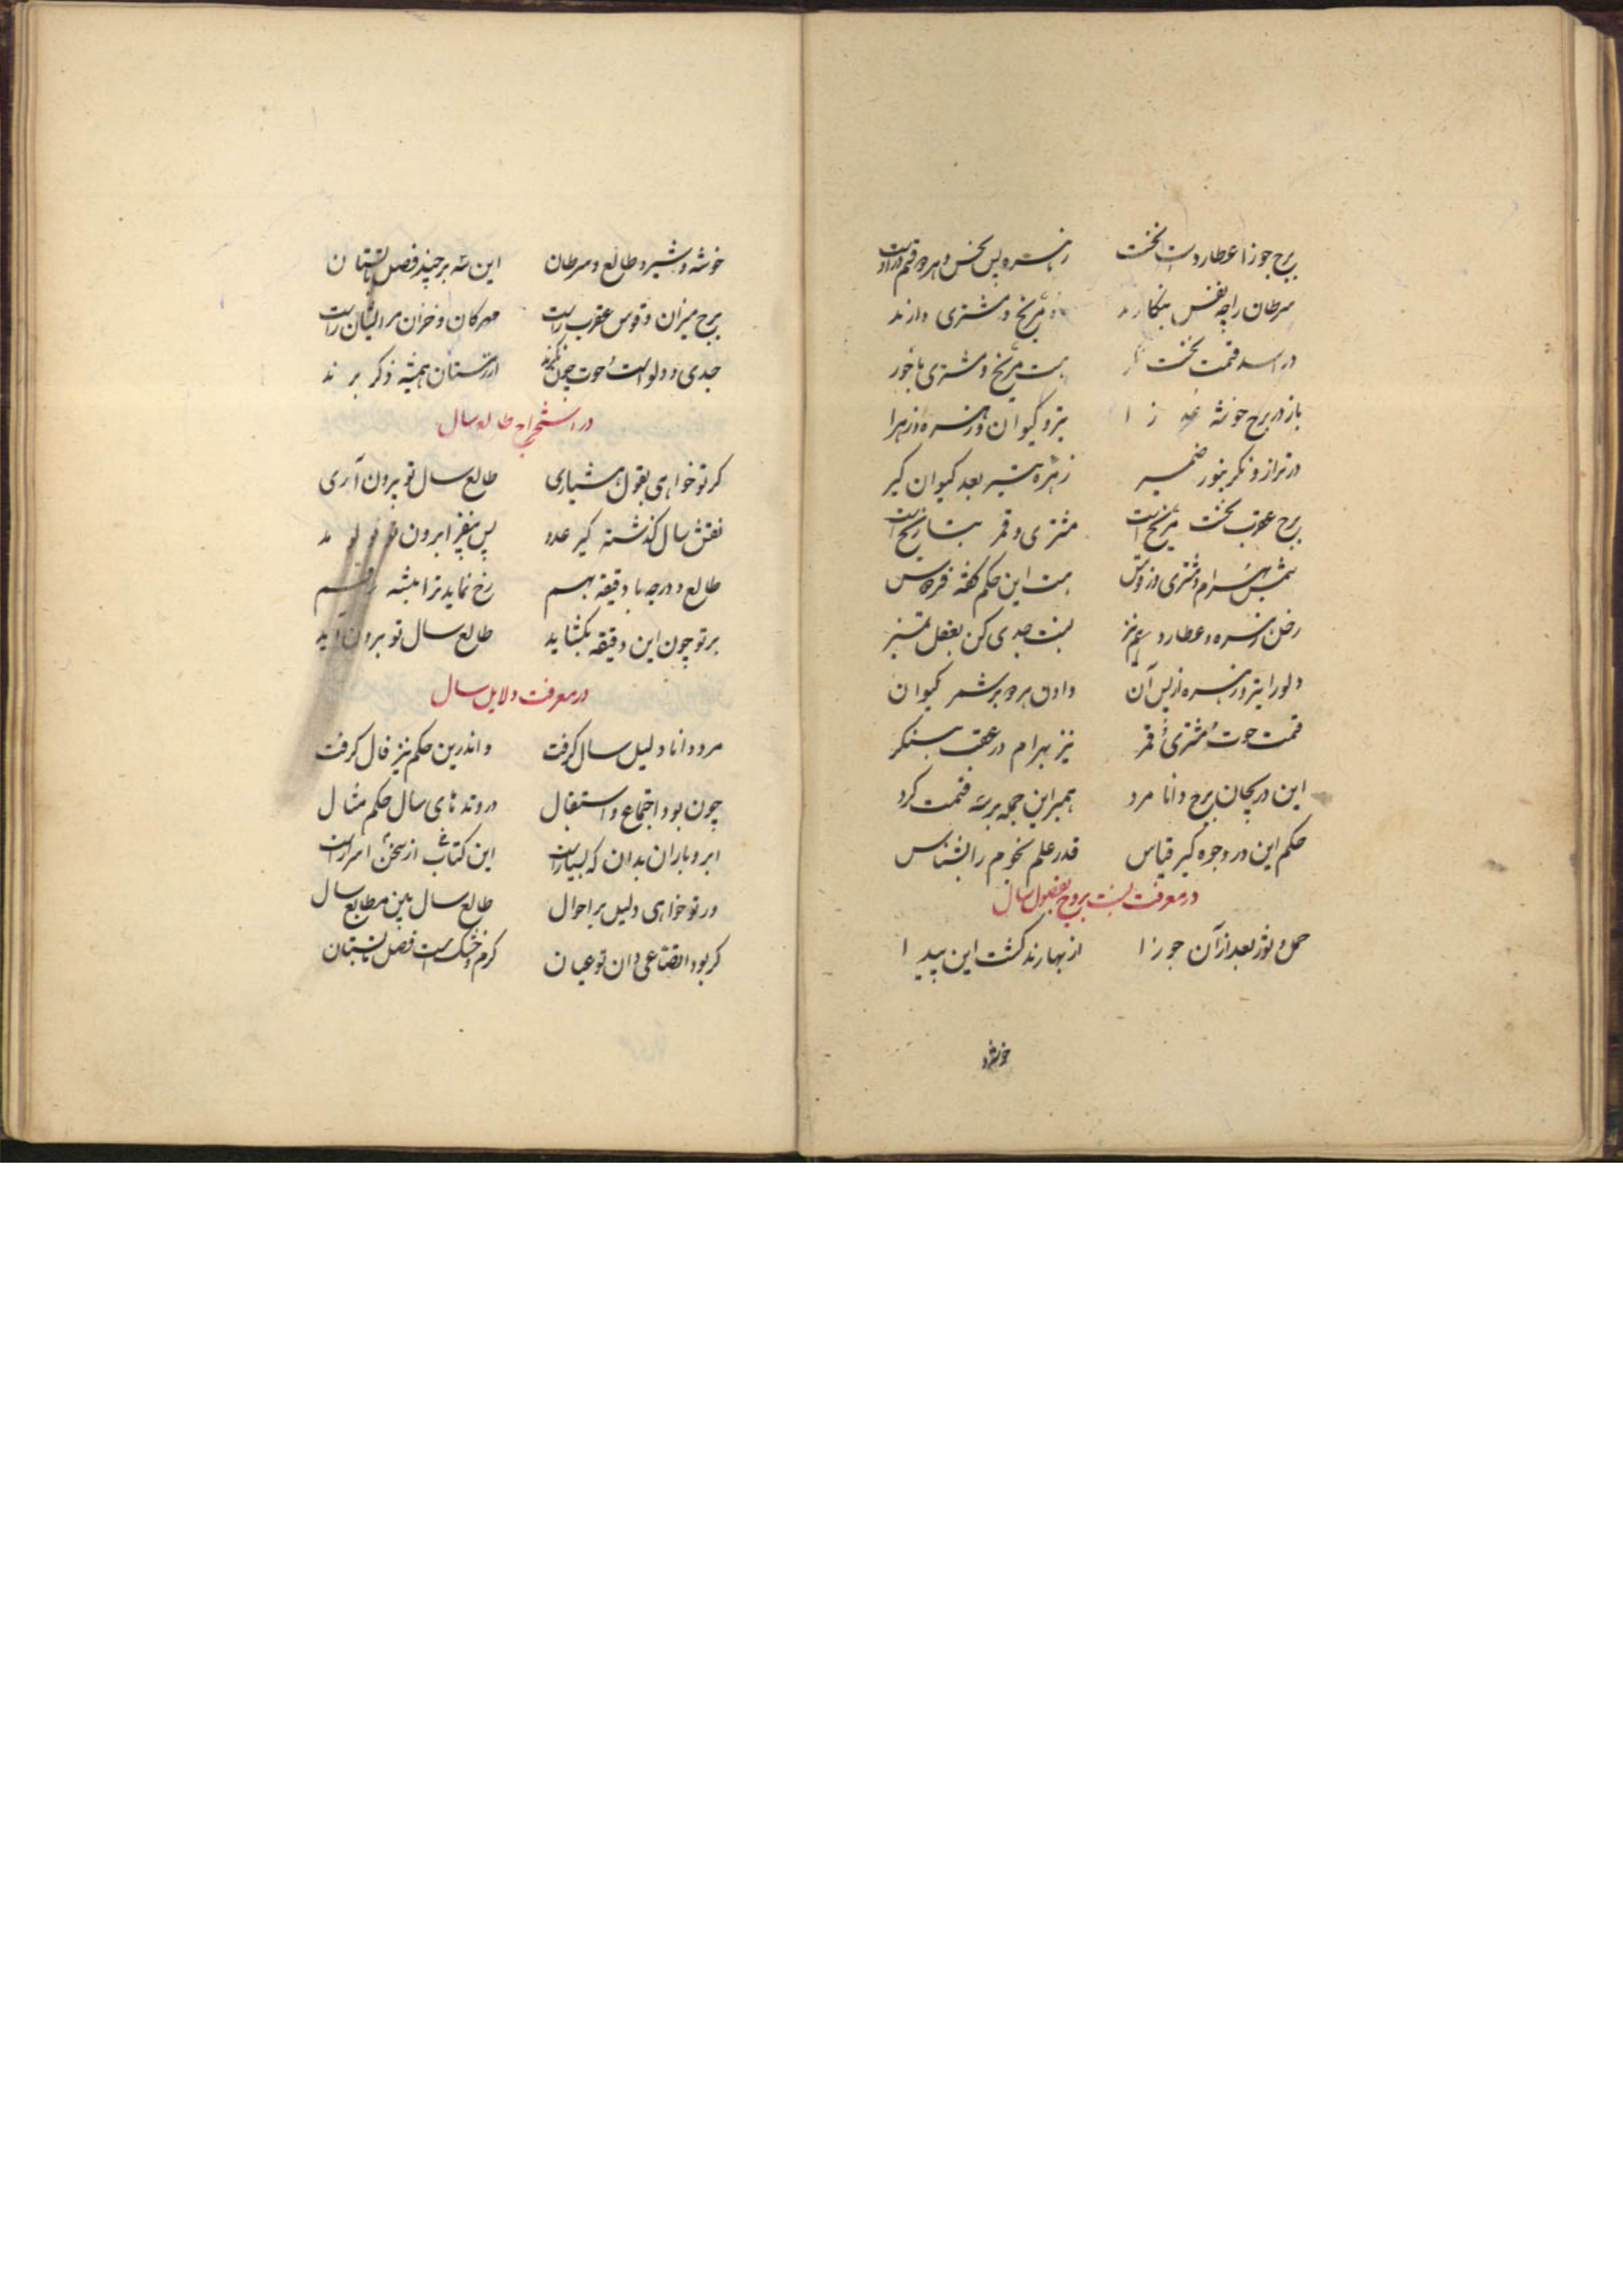 برج جوزا عطاردست نخست زهره پس نحس و هرچه قسم
سرطان را چه نقش بنگارند مریخ و مشتری دارند
در اسد قسمت نخست هست مریخ و مشتری با خور
باز در برج خوشه تیر و کیوان و زهره زهرا
در ترازو نگر بنور ضمیر زهره تیر بعد کیوان گیر
برج عقرب نخست مریخ است مشتری و قمر بتاریخ است
شمس بهرام و مشتری در قوس هست این حکم گفته
زحل و زهره و عطارد نیز نسبت جدی کن بعقل تمیز
دلو را تیر و زهره از پس آن دادن بهره بر شمر کیوان
قسمت حوت مشتری قمر نیز بهرام در عقب بنگر
این دریجان برج دانا مرد همبرین جمله بر سه قسمت کرد
حکم این در وجوه گیر قیاس قدر علم نجوم را بشناس
در معرفت نسبت بروج بفصول سال
حمل و ثور بعد از آن جوزا از بهارند گشت این پیدا
خوشه و
خوشه و شیر و طالع و سرطان این سه برجند فصل تابستان
برج میزان و قوس عقرب راست مهرکان و خزان مر ایشان راست
جدی و دلوست حوت چون نگرند از زمستان همیشه ذکر برند
در استخراج طالع سال
کر تو خواهی بقول هشیاری طالع سال تو برون آری
نقش سال گذشته گیر عدد پس بیفزا برون
طالع و درجه با دقیقه بهم رخ نماید ترا همیشه رقم
بر تو چون این دقیقه بگشاید طالع سال تو برون آید
در معرفت دلایل سال
مرد دانا دلیل سال گرفت و اندرین حکم نیز فال گرفت
چون بود اجتماع و استقبال در وتدهای سال حکم مثال
ابر و باران بدان که بسیارست این کتاب از سخن اسرارست
ور تو خواهی دلیل بر احوال طالع سال بین مطالع سال
کر بود اتفاعی دان تو عیان گرم و خشک است فصل تابستان